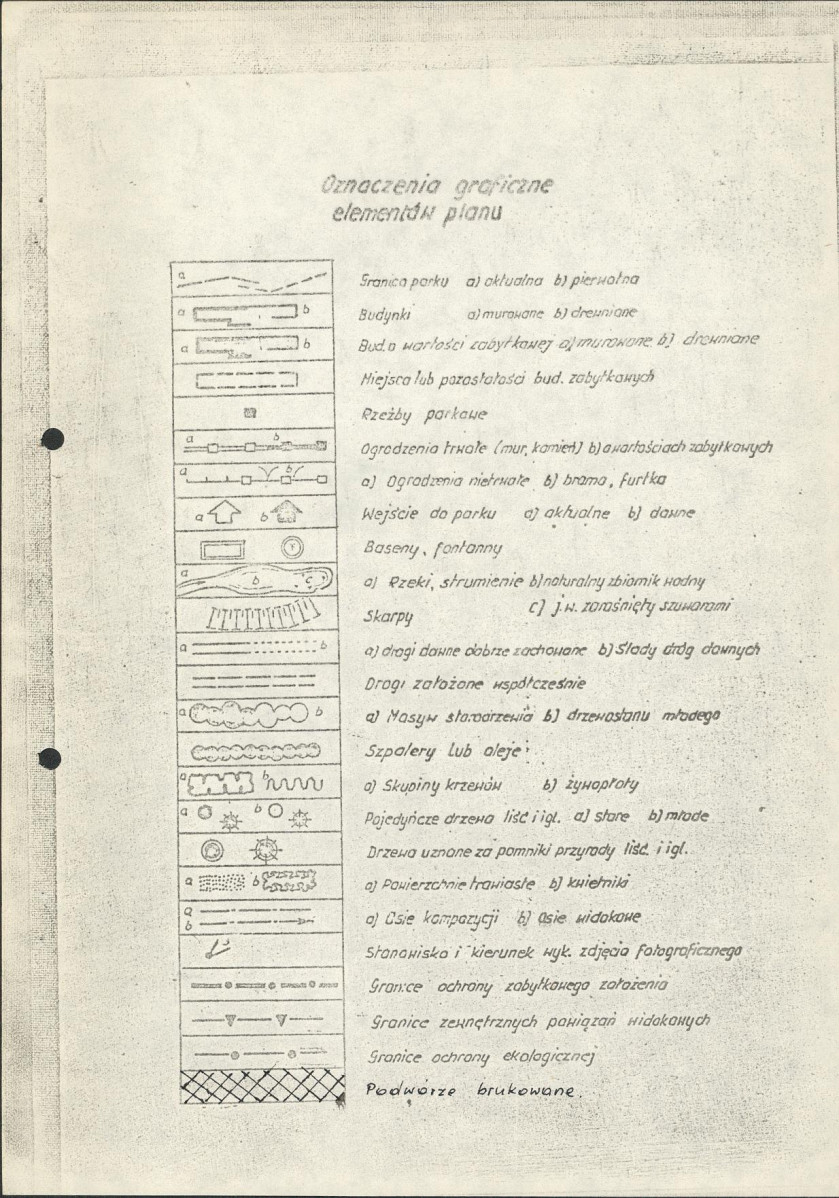 Oznaczenia graficzne
elementów planu
a Granica parku a) aktualna b) pierwotna
a b Budynki a) murowane b) drewniane
a b Bud. o wartości zabytkowej a) murowane b) drewniane
Miejsca lub pozostałości bud. zabytkowych
Rzeźby parkowe
a b Ogrodzenia trwałe (mur, kamień) b) o wartościach zabytkowych
a b a) Ogrodzenia nietrwałe b) brama, furtka
a b Wejście do parku a) aktualne b) dawne
Baseny, fontanny
a b c a) Rzeki, strumienie b) naturalny zbiornik wodny
c) j.w. zarośnięty szuwarami
Skarpy
a b a) drogi dawne dobrze zachowane b) Ślady dróg dawnych
Drogi założone współcześnie
a b a) Masyw starodrzewia b) drzewostanu młodego
Szpalery lub aleje
a b a) Skupiny krzewów b) żywopłoty
a b Pojedyńcze drzewa liść i igl. a) stare b) młode
Drzewa uznane za pomniki przyrody liść. i igl.
a b a) Powierzchnie trawiaste b) kwietniki
a
b a) Osie kompozycji b) Osie widokowe
Stanowisko i kierunek wyk. zdjęcia fotograficznego
Granice ochrony zabytkowego założenia
Granice zewnętrznych powiązań widokowych
Granice ochrony ekologicznej
Podwórze brukowane.